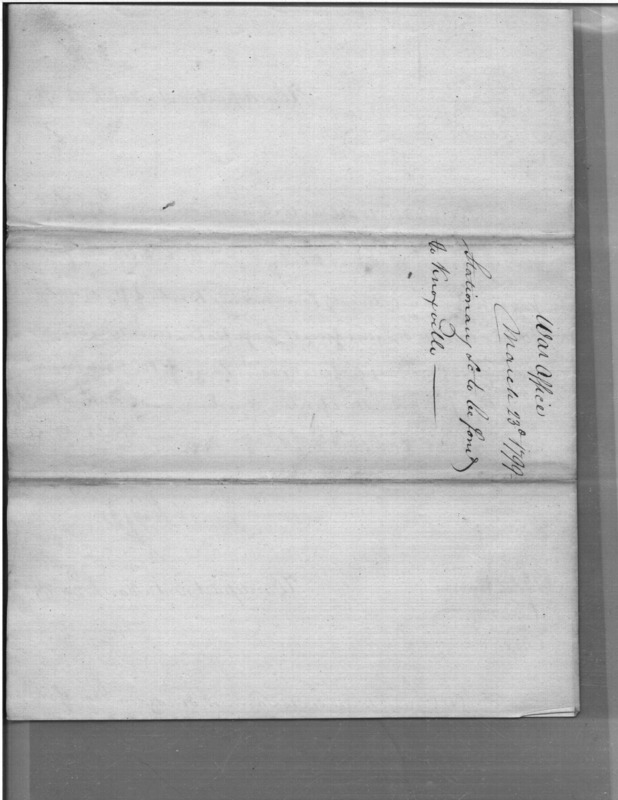 War Office
March 23d 1799.
Stationary &c to be forwd
to Knoxville —